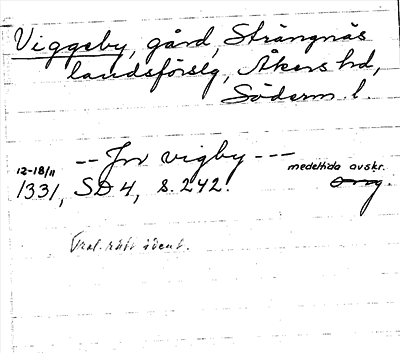 Viggeby, gård, Strängnäs
landsförslg, Åkers hd,
Söderm. l.
-- Jn vigby ---
12-18/11
medeltida avskr.
1331, SD 4, s. 242. orig
ident.